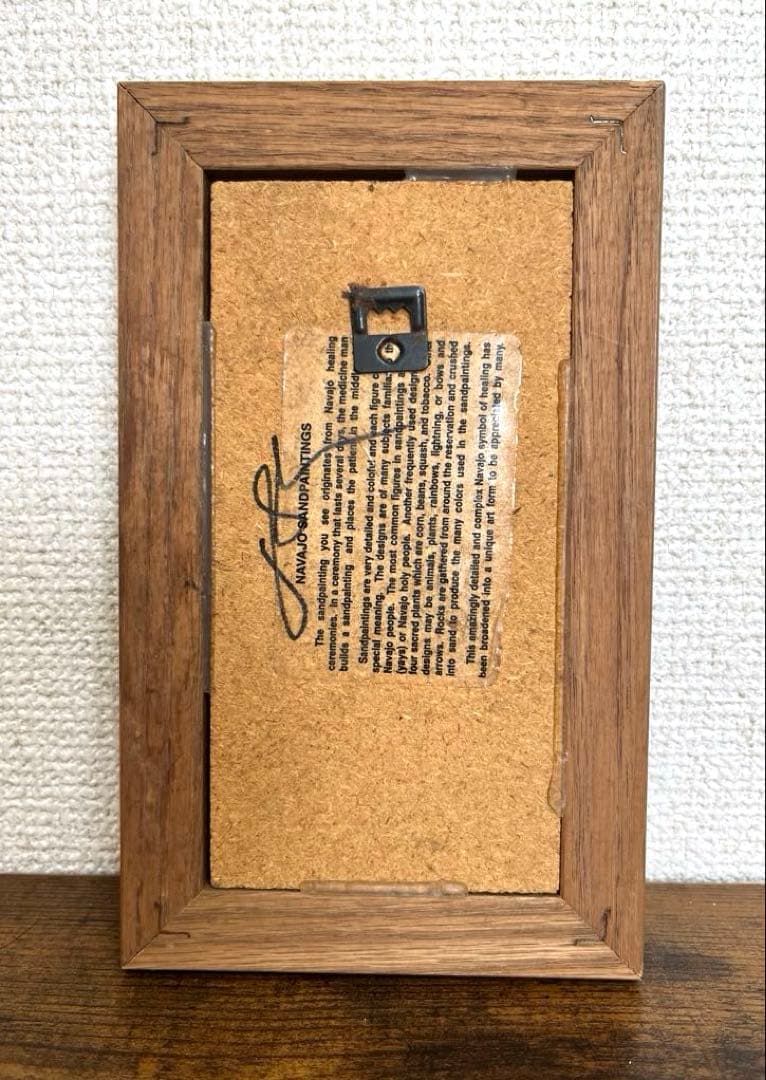 NAVAJO SANDPAINTINGS
The sandpainting you see originates from Navajo healing
ceremonies. In a ceremony that lasts several days, the medicine man
builds a sandpainting and places the patient in the middle
Sandpaintings are very detailed and colorful and each figure
special meaning. The designs are of many subjects familiar
Navajo people. The most common figures in sandpaintings
(yeys) or Navajo holy people. Another frequently used design
four sacred plants which are corn, beans, squash, and tobacco.
designs may be animals, plants, rainbows, lightning, or bows and
arrows. Rocks are gathered from around the reservation and crushed
into sand to produce the many colors used in the sandpaintings.
This amazingly detailed and complex Navajo symbol of healing has
been broadened into a unique art form to be appreciated by many.